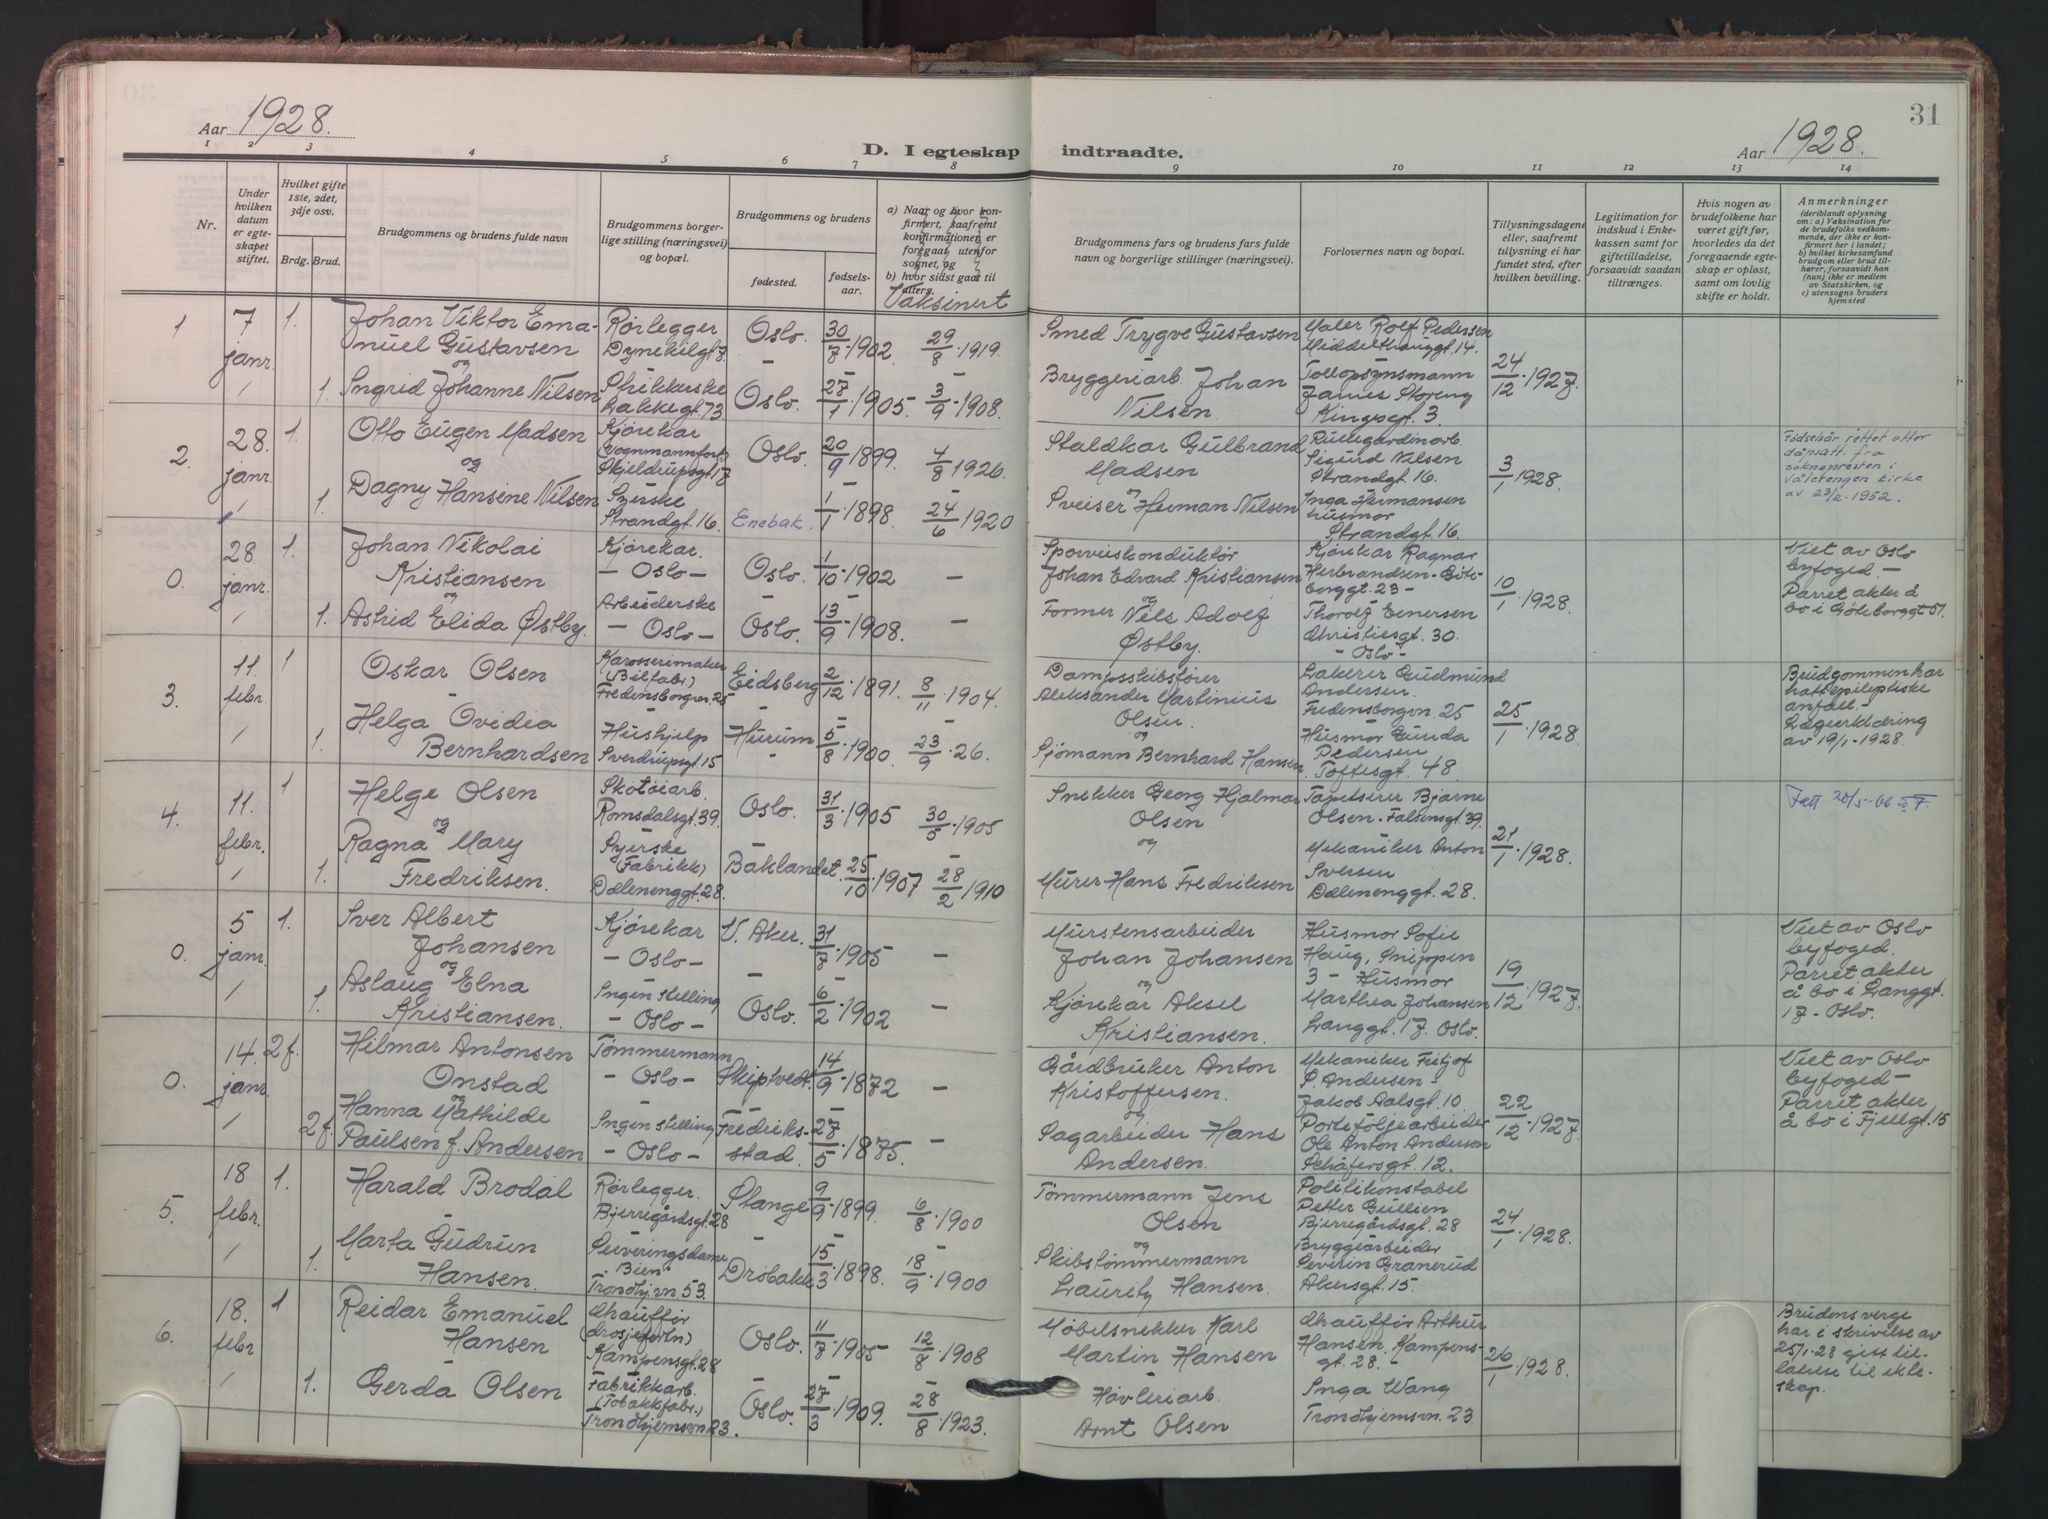 Aar 1928.
31
Aar 1928.
D. I egteskap indtraadte.
1 2 3 4 5 6 7 8 9 10 11 12 13 14
Nr.
Under hvilken datum er egteskapet stiftet.
Hvilket gifte 1ste, 2det, 3dje osv.
Brdg. Brud.
Brudgommens og brudens fulde navn
Brudgommens borgerlige stilling (næringsvei) og bopæl.
Brudgommens og brudens
fødested.
fødselsaar.
a) Naar og hvor konfirmert, saafremt konfirmationen er foregaat utenfor sognet, og
b) hvor sidst gaat til alters.
Vaksinert
Brudgommens fars og brudens fars fulde navn og borgerlige stillinger (næringsvei).
Forlovernes navn og bopæl.
Tillysningsdagene eller, saafremt tillysning ei har fundet sted, efter hvilken bevilling.
Legitimation for indskud i Enkekassen samt for giftetilladelse, forsaavidt saadan tiltrænges.
Hvis nogen av brudefolkene har været gift før, hvorledes da det foregaaende egteskap er opløst, samt om lovlig skifte er holdt.
Anmerkninger
(deriblandt oplysning om: a) Vaksination for de brudefolks vedkommende, der ikke er konfirmert her i landet; b) hvilket kirkesamfund brudgom eller brud tilhører, forsaavidt han (hun) ikke er medlem av Statskirken, og c) utensogns bruders hjemsted
1 7 janr. 1.
Johan Viktor Emanuel Gustavsen
Rørlegger
Dynekilgt. 7.
Oslo. 30/7-1902. 29/8-1919.
Smed Trygve Gustavsen
Maler Rolf Pedersen
Middelthunsgt. 14.
og
1. Ingrid Johanne Nilsen
Strikkerske
Lakkegt. 73
Oslo. 27/1-1905. 3/9-1908.
Bryggeriarb. Johan
Nilsen.
Tollopsynsmann
James Storeng
Kingosgt. 3
24/12-1927.
2. 28. janr. 1.
Otto Eugen Madsen
Kjørekar
(Vognmannforr.)
Skjeldrupsgt. 17
Oslo. 20/9 1899. 4/8-1926.
Staldkar Gulbrand
Madsen
Rullegardinarb.
Sigurd Nilsen
Strandgt. 16.
3/1-1928.
Fødselsår rettet etter
dåpsatt. fra
sokneprosten i
Vålerengen kirke
av 23/2-1952.
og
1. Dagny Hansine Nilsen
Syerske
Strandgt. 16.
Enebak. 1/1-1898. 24/6-1920
Sveiser Herman Nilsen
Inga Hermansen
husmor
Strandgt. 16.
0. 28 janr. 1.
Johan Nikolai
Kristiansen
Kjørekar.
- Oslo -
Oslo. 1/10-1902 -
Sporveiskonduktør
Johan Edvard Kristiansen
Kjørekar Ragnar
Herbrandsen - Göteborggt. 23 -
10/1-1928.
Viet av Oslo
byfoged. -
Parret akter å
bo i Göteborggt 51.
og
1. Astrid Elida Østby.
Arbeiderske
- Oslo -
Oslo. 13/9-1908. -
Former Nils Adolf
Østby.
Thorolf Einersen
Christiesgt. 30.
- Oslo -
3. 11. febr. 1
Oskar Olsen
Karosserimaker
(Bilfabr.)
Fredensborgvn. 25
Eidsberg 2/12-1891. 8/11-1904.
Dampskibsfører
Aleksander Martinius
Olsen.
Lakerer Gudmund
Andersen
Fredensborgvn. 25
25/1-1928.
Brudgommen har
hatt epileptiske
anfall. -
Lægeerklæring
av 19/1-1928.
1. Helga Ovidia
Bernhardsen
Hushjelp
Sverdrupsgt. 15
Hurum 5/8-1900. 23/9-26.
og
Sjømann Bernhard Hansen.
Husmor Gunda
Pedersen
Toftesgt. 48.
4. 11. febr. 1
Helge Olsen
Skotøiarb.
Romsdalsgt. 39.
Oslo. 31/3-1905 30/5-1905
Snekker Georg Hjalmar
Olsen
Tapetserer Bjarne
Olsen - Falsensgt. 39.
21/1-1928.
og
1. Ragna Mary
Fredriksen.
Syerske
(Fabrikk)
Dælenenggt. 28.
Baklandet. 25/10-1907 28/2-1910
Murer Hans Fredriksen
Mekaniker Anton
Iversen
Dælenenggt. 28.
0. 5 janr. 1.
Iver Albert
Johansen
Kjørekar
- Oslo -
V. Aker. 31/7-1905 -
Murstensarbeider
Johan Johansen
Husmor Sofie
Haug, Snippen
3 - Husmor
Marthea Johansen
Langgt. 17. Oslo.
19/12-1927.
Viet av Oslo
byfoged.
Parret akter
å bo i Langgt.
17 - Oslo.
og
1. Aslaug Elna
Kristiansen.
Ingen stilling
- Oslo -
Oslo. 6/2-1902 -
Kjørekar Aksel
Kristiansen.
0. 14. janr. 2f.
Hilmar Antonsen
Onstad
Tømmermann
- Oslo -
Skiptvedt. 14/9-1872 -
Gårdbruker Anton
Kristoffersen.
Mekaniker Fritjof
S. Andersen -
Jakob Aalsgt. 10
22/12-1927.
Viet av Oslo
byfoged -
Parret akter
å bo i Fjellgt. 15
og
2f. Hanna Mathilde
Paulsen f. Andersen
Ingen stilling
- Oslo -
Fredrikstad. 27/5-1875. -
Sagarbeider Hans
Andersen.
Porteføljearbeider
Ole Anton Anderson
Schäfersgt. 12.
5. 18 febr. 1.
Harald Brodal
Rørlegger.
Bjerregårdsgt. 28
Stange 9/9-1899. 6/8-1900
Tømmermann Jens
Olsen
Politikonstabel
Petter Gullien
Bjerregårdsgt. 28
24/1-1928.
1. Marta Gudrun
Hansen.
Serveringsdame
"Bien"
Trondhj.vn. 53.
Drøbakk 15/3-1898. 18/9-1900
og
Skibstømmermann
Lauritz Hansen.
Bryggearbeider
Severin Granerud
Akersgt. 15.
6. 18. febr 1
Reidar Emanuel
Hansen
Chauffør
(drosjeforln)
Kampensgt. 28
Oslo. 11/7-1905 12/8-1908
Møbelsnekker Karl
Martin Hansen
Chauffør Arthur
Hansen. Kampensgt. 28. -
26/1-1928.
Brudens verge
har i skrivelse av
25/1-28 gitt tillatelse til ekteskap.
1. Gerda Olsen
Fabrikkarb.
(Tobakkfabr.)
Trondhjemsvn 23.
Oslo. 27/3-1909. 28/8-1923.
Høvleriarb.
Arnt Olsen
Inga Wang
Trondhjemsvn. 23